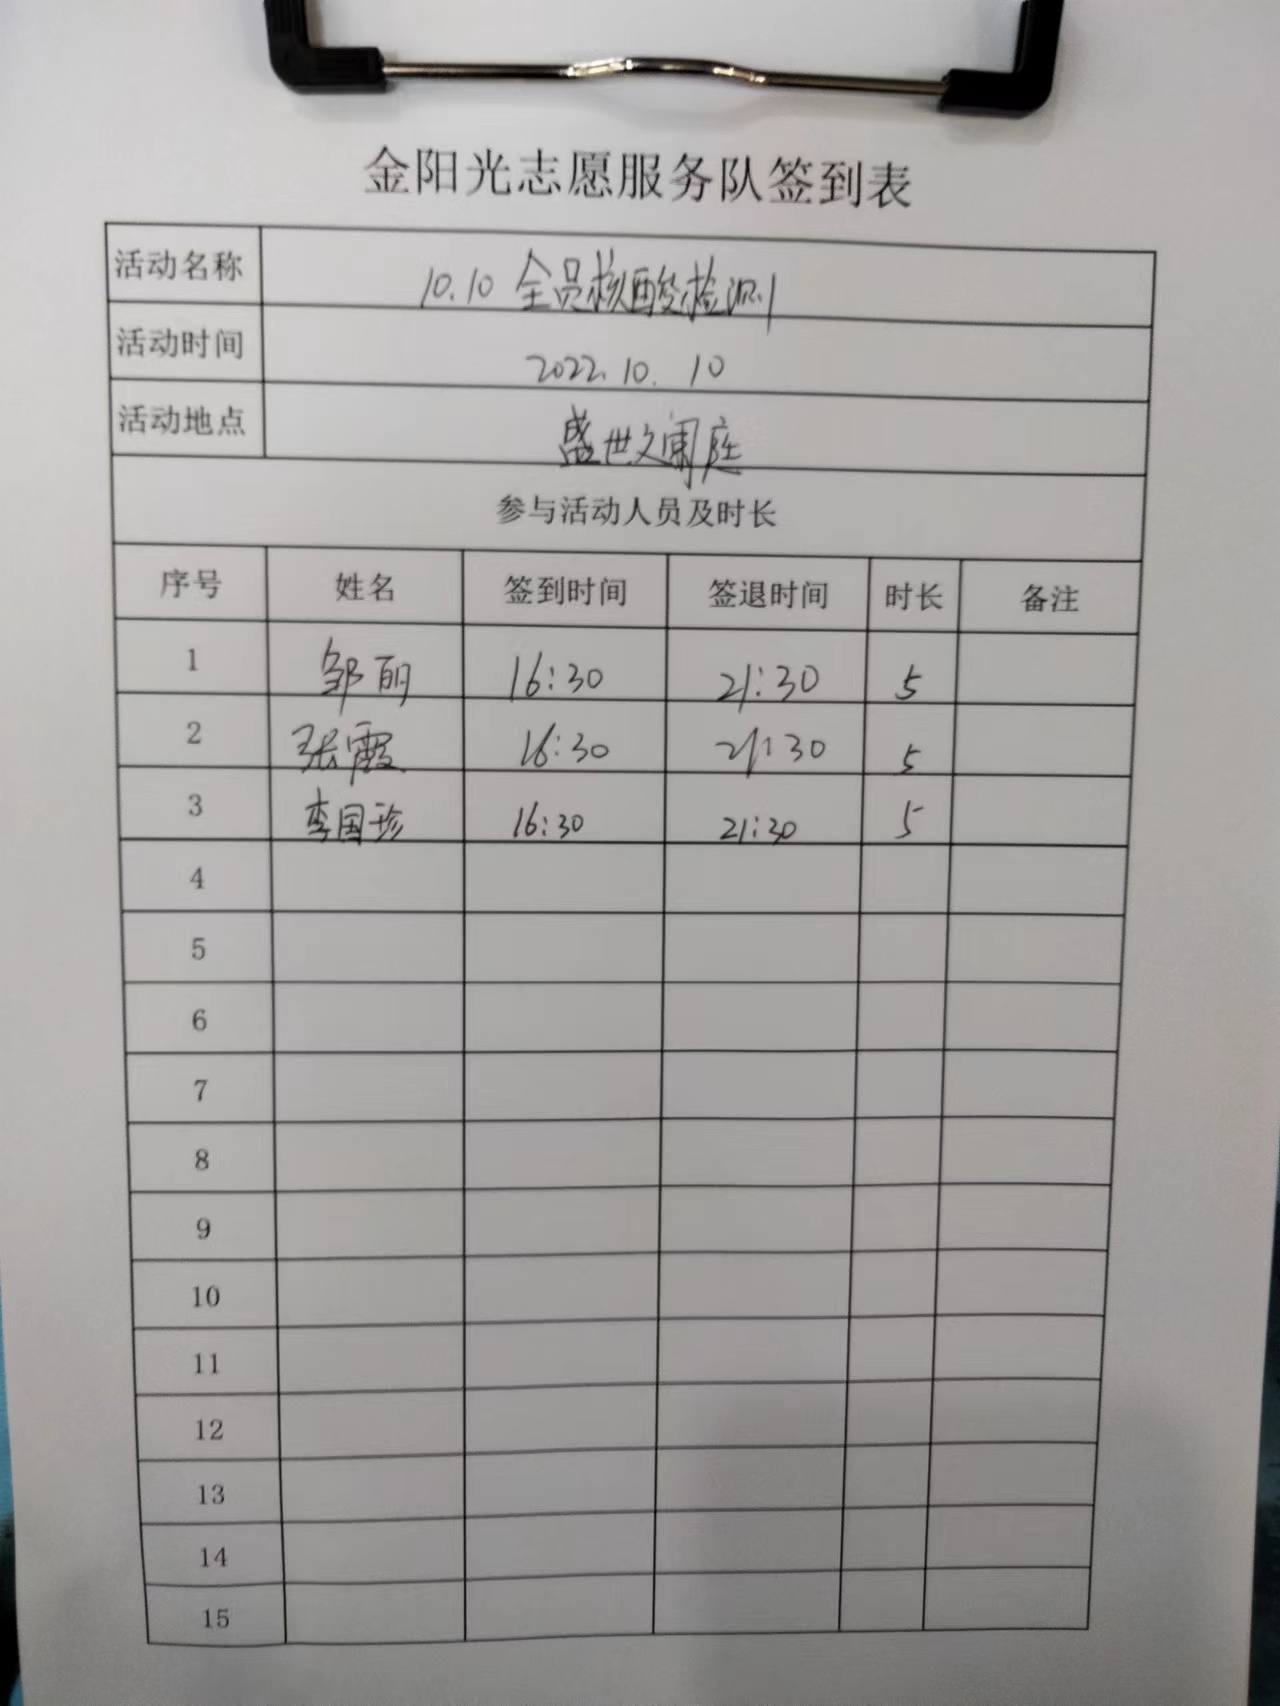 金阳光志愿服务队签到表
活动名称 10.10 全员核酸检测
活动时间 2022.10.10
活动地点 盛世文阑庭
参与活动人员及时长
序号 姓名 签到时间 签退时间 时长 备注
1 邹丽 16:30 21:30 5
2 张霞 16:30 21:30 5
3 李国珍 16:30 21:30 5
4
5
6
7
8
9
10
11
12
13
14
15